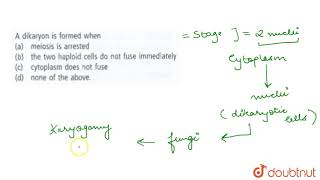 A dikaryon is formed when
(a) meiosis is arrested
(b) the two haploid cells do not fuse immediately
(c) cytoplasm does not fuse
(d) none of the above.
= Stage ] = 2 nuclei
Cytoplasm
nuclei
(dikaryotic
cells)
Karyogamy ← fungi ←
doubtnut